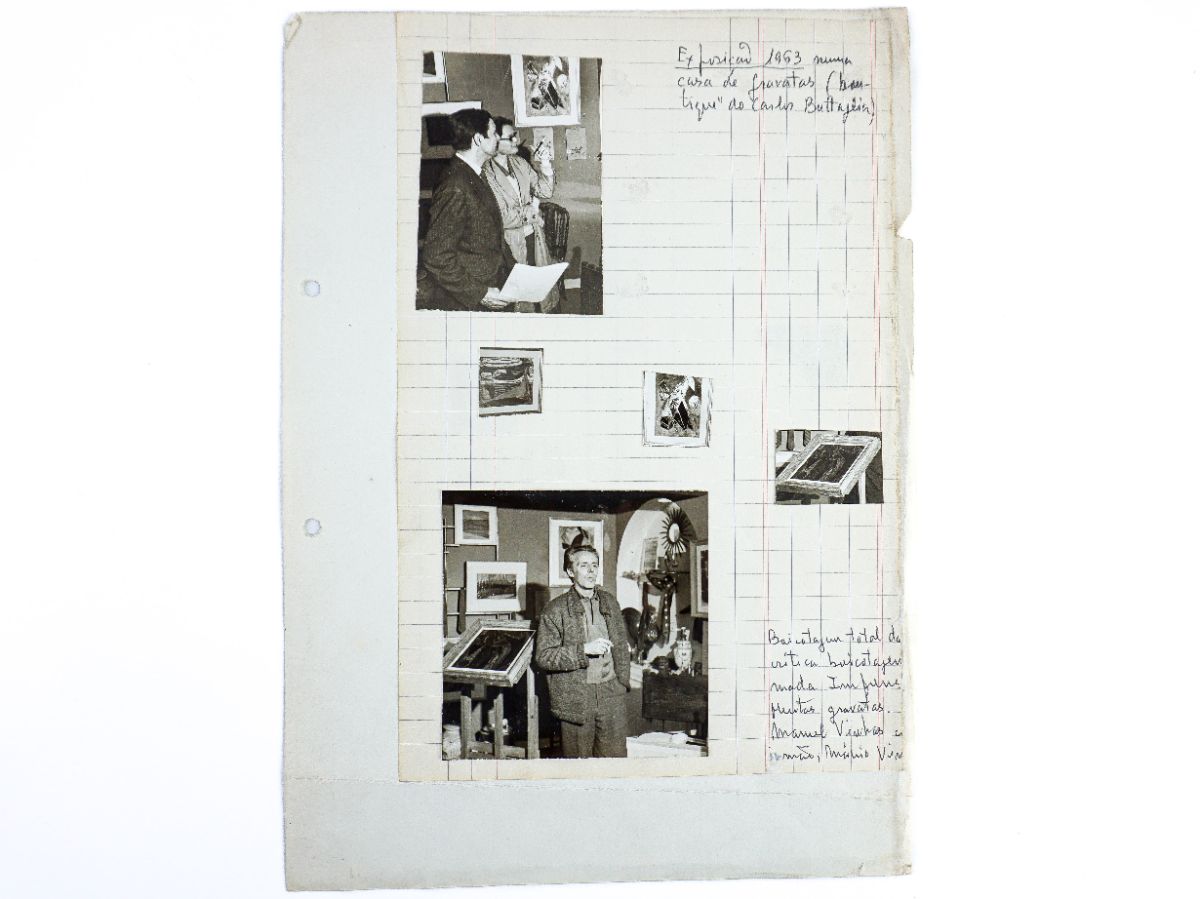 Exposição 1963 numa
casa de gravatas (bou-
tique" do Carlos Battaglia)
Boicotagem total da
crítica boicotagem
mada
gravatas.
Manuel Vinhas e
irmão, Mário Vin